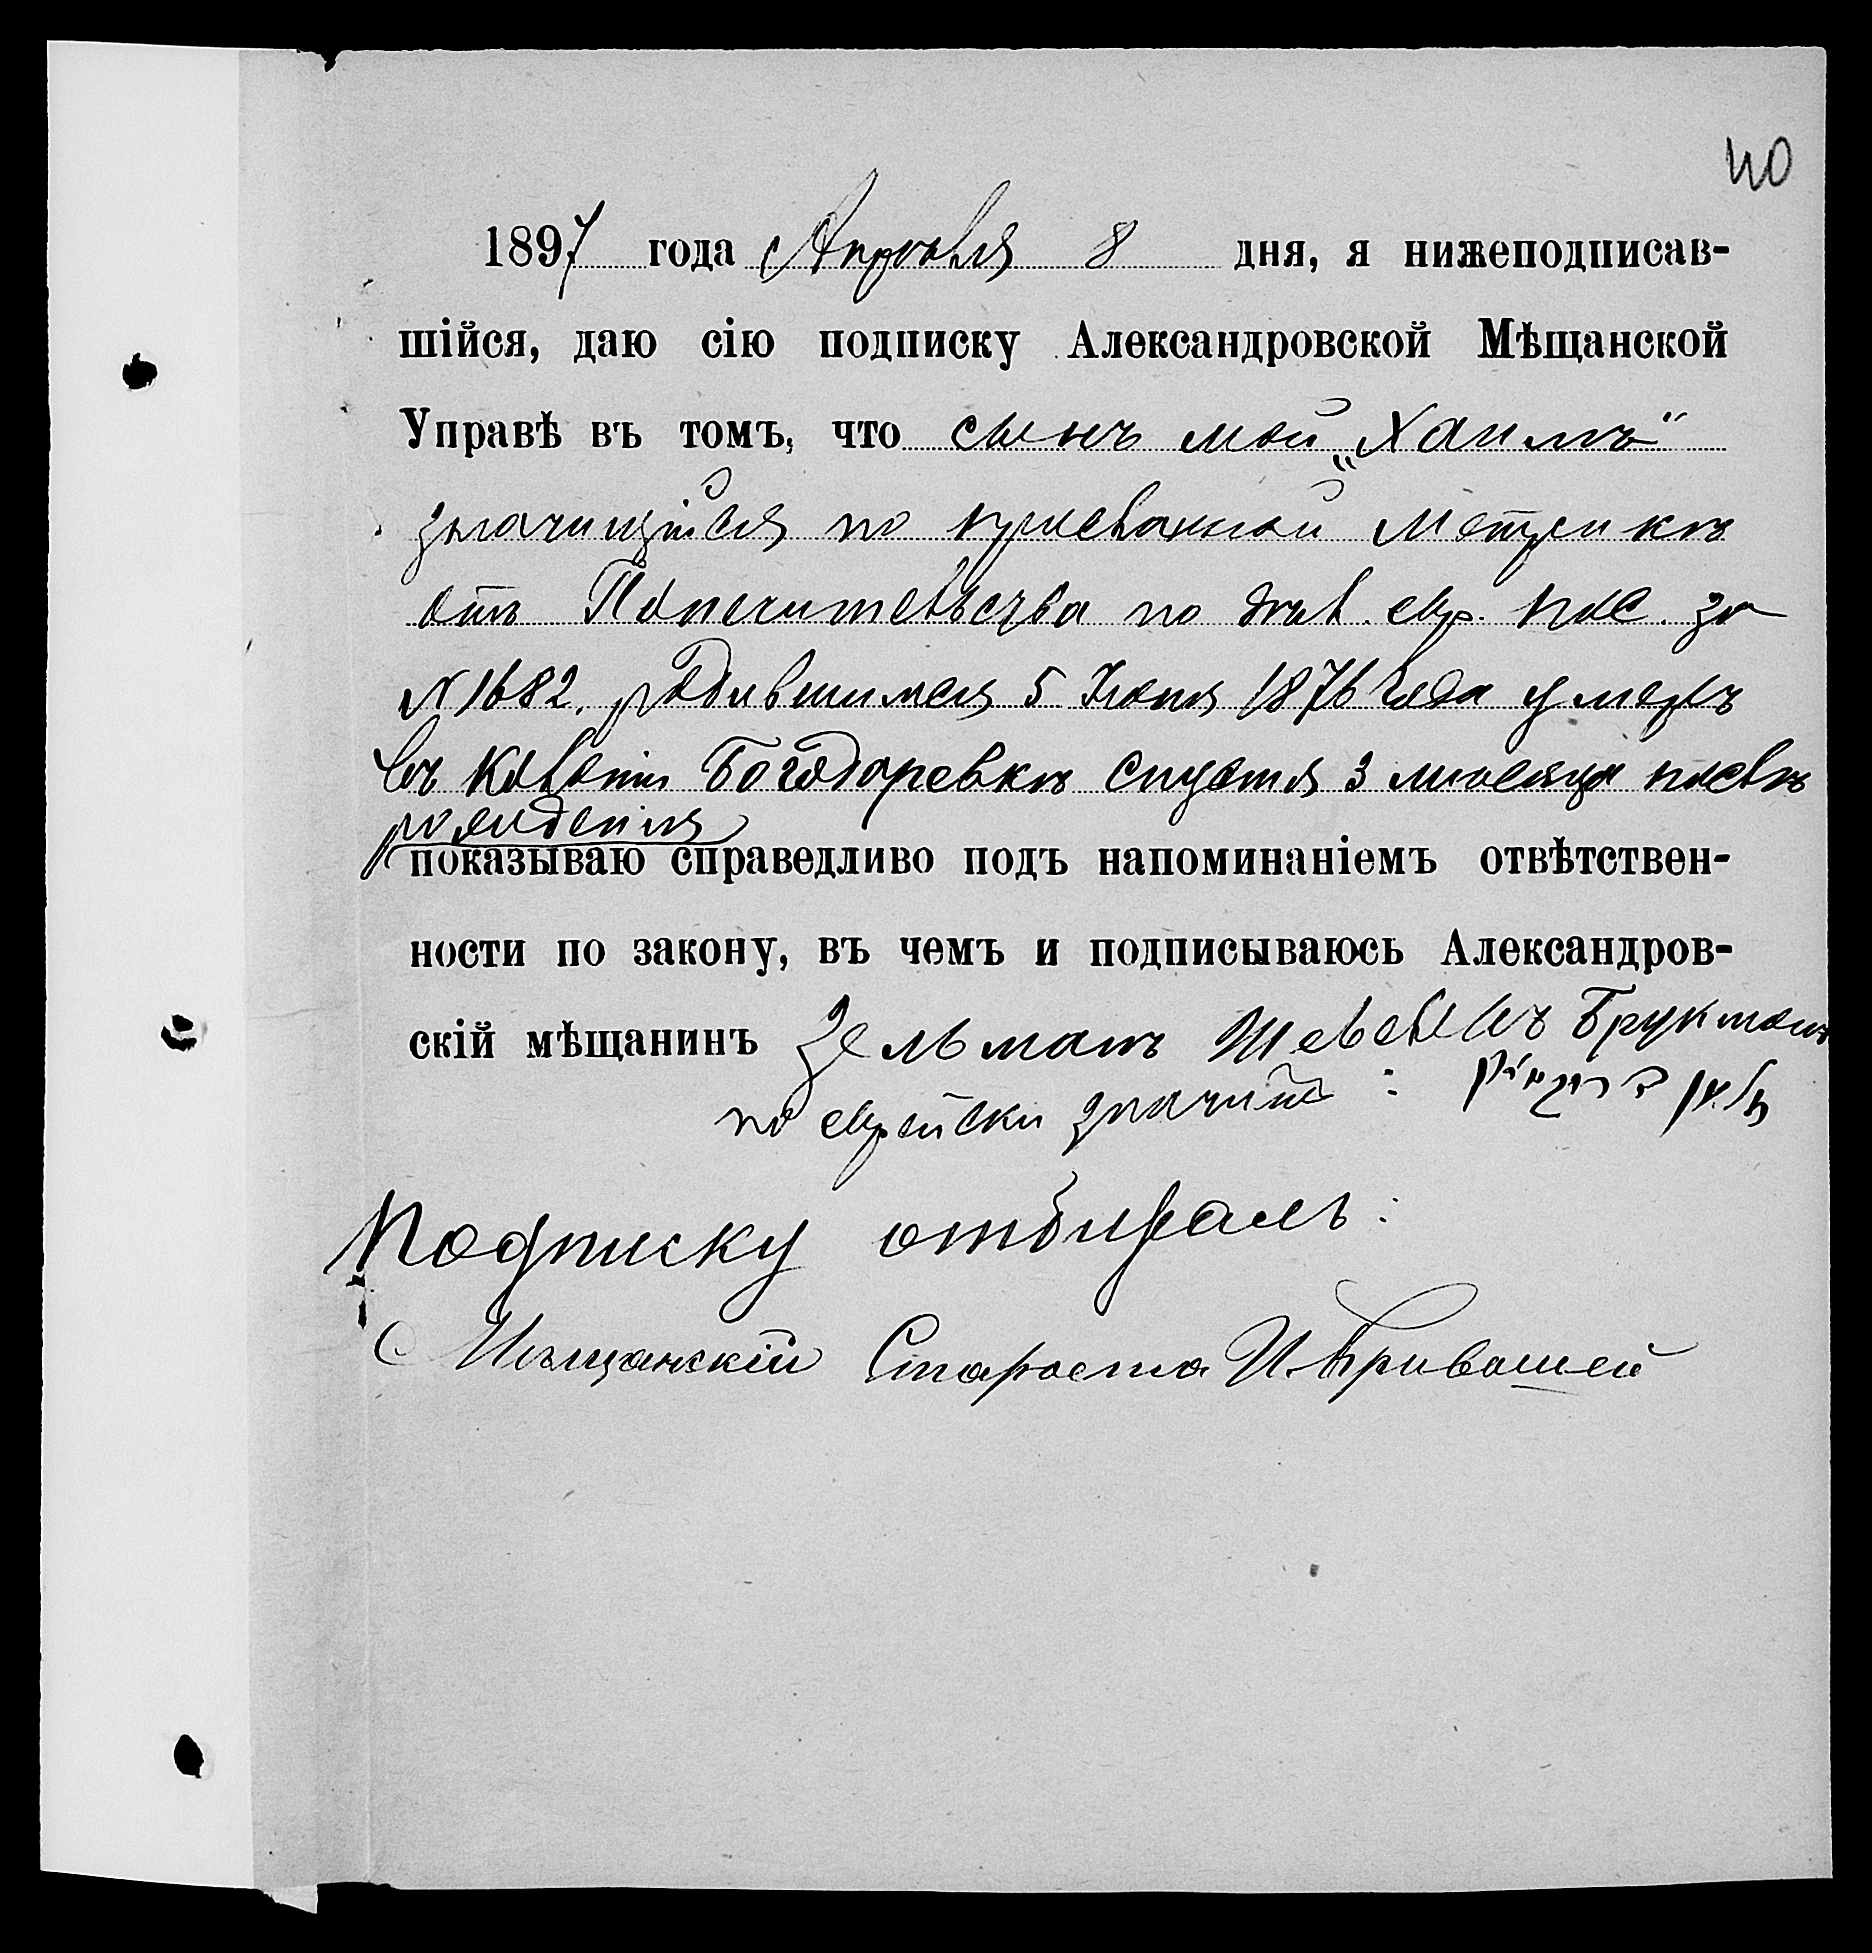 40
1897 года Апрѣля 8 дня, я нижеподписав-
шійся, даю сію подписку Александровской Мѣщанской
Управѣ въ томъ, что сынъ мой „Хаимъ"
значащійся по присланной Метрикѣ
отъ Попечительства по дѣл. евр. пос. за
№ 1682. родившимся 5 Іюня 1876 года умеръ
въ Колоніи Богодаревкѣ спустя 3 мѣсяца послѣ
рожденія
показываю справедливо подъ напоминаніемъ отвѣтствен-
ности по закону, въ чемъ и подписываюсь Александров-
скій мѣщанинъ Зельманъ Брукманъ
по еврейски значитъ: זלמן ברוקמאן
Подписку отбиралъ:
Мѣщанскій Староста И. Кривошей